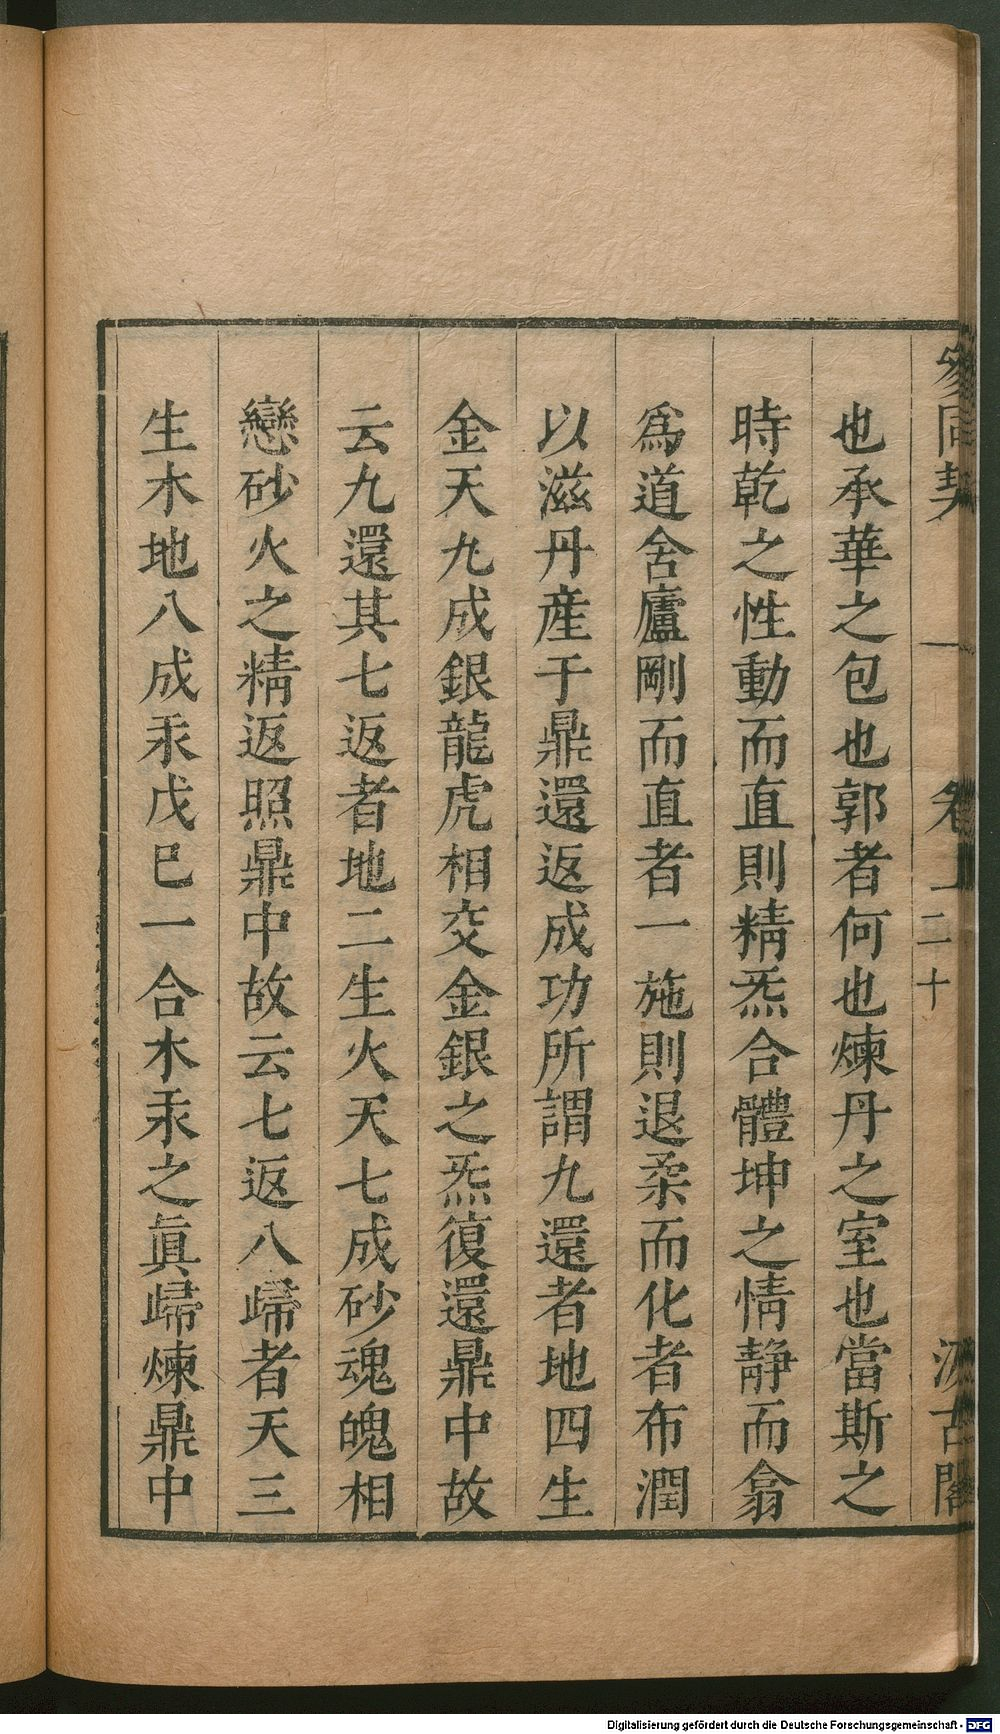 參同契 卷一 二十 汲古閣
也承華之包也郭者何也煉丹之室也當斯之
時乾之性動而直則精炁合體坤之情靜而翕
爲道舍廬剛而直者一施則退柔而化者布潤
以滋丹産于鼎還返成功所謂九還者地四生
金天九成銀龍虎相交金銀之炁復還鼎中故
云九還其七返者地二生火天七成砂魂魄相
戀砂火之精返照鼎中故云七返八歸者天三
生木地八成汞戊巳一合木汞之眞歸煉鼎中
Digitalisierung gefördert durch die Deutsche Forschungsgemeinschaft - DFG